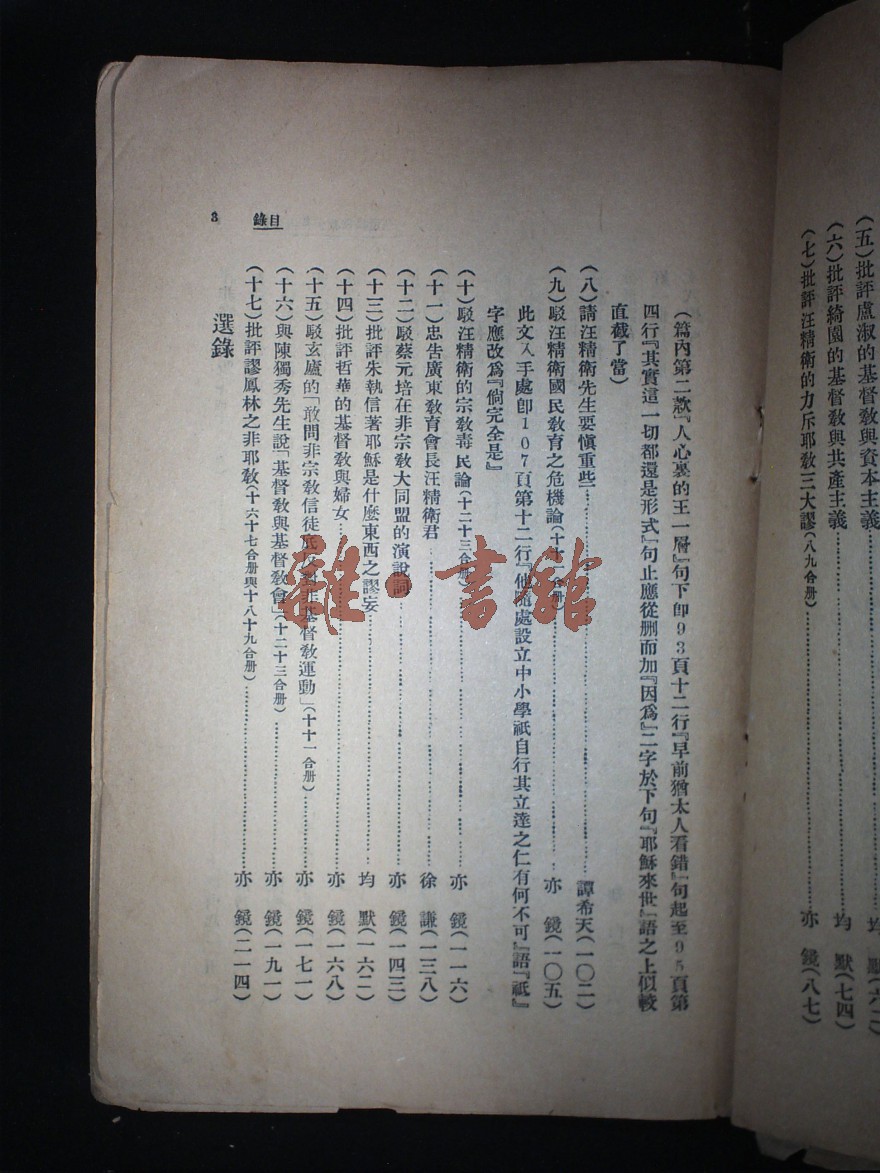 （五）批評盧淑的基督敎與資本主義……均 默（六二）
（六）批評綺園的基督敎與共產主義……均 默（七四）
（七）批評汪精衛的力斥耶敎三大謬（八九合册）……亦 鏡（八七）
（篇內第二款『人心裏的王一層』句下卽93頁十二行『早前猶太人看錯』句起至95頁第
四行『其實這一切都還是形式』句止應從删而加『因爲』二字於下句『耶穌來世』語之上似較
直截了當）
（八）請汪精衛先生要愼重些……譚希天（一〇二）
（九）駁汪精衛國民敎育之危機論（十十一合册）……亦 鏡（一〇五）
此文入手處卽107頁第十二行『他隨處設立中小學祇自行其立達之仁有何不可』語『祇』
字應改爲『倘完全是』
（十）駁汪精衛的宗敎毒民論（十二十三合册）……亦 鏡（一一六）
（十一）忠告廣東敎育會長汪精衛君……徐 謙（一三八）
（十二）駁蔡元培在非宗敎大同盟的演說詞……亦 鏡（一四三）
（十三）批評朱執信著耶穌是什麽東西之謬妄……均 默（一六二）
（十四）批評哲華的基督敎與婦女……亦 鏡（一六八）
（十五）駁玄廬的「敢問非宗敎信徒底反對非基督敎運動」（十十一合册）……亦 鏡（一七一）
（十六）與陳獨秀先生說「基督敎與基督敎會」（十二十三合册）……亦 鏡（一九一）
（十七）批評謬鳳林之非耶敎（十六十七合册與十八十九合册）……亦 鏡（二一四）
選錄
錄目
3
雜·書館